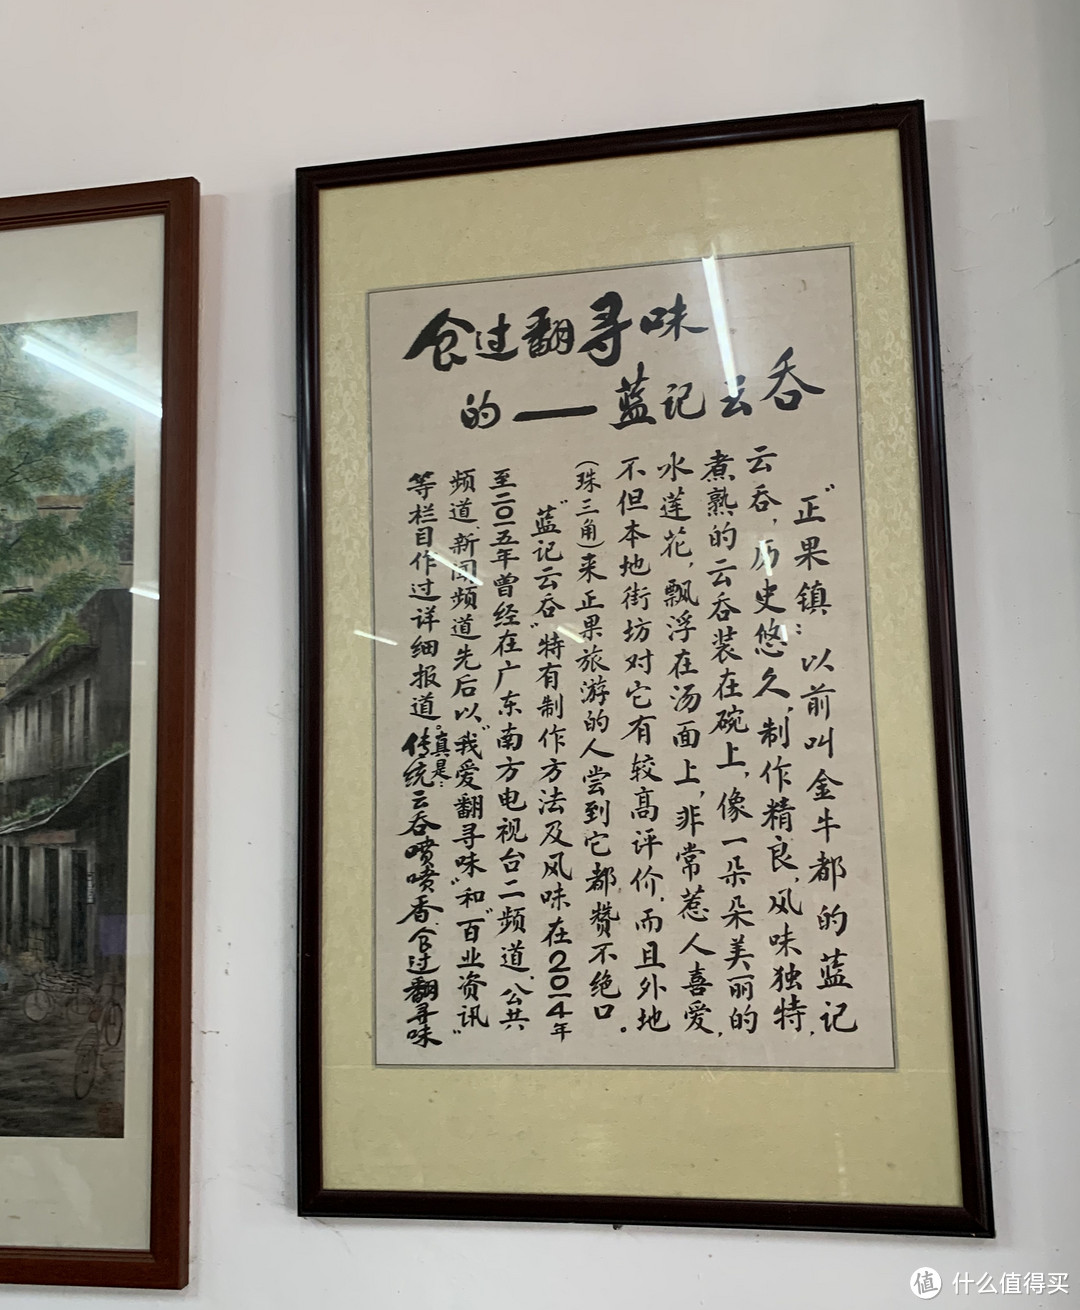 食过翻寻味
的——蓝记云吞
"正果镇：以前叫金牛都的蓝记
云吞，历史悠久，制作精良，风味独特，
煮熟的云吞装在碗上，像一朵朵美丽的
水莲花，飘浮在汤面上，非常惹人喜爱，
不但本地街坊对它有较高评价，而且外地
（珠三角）来正果旅游的人尝到它都赞不绝口。
"蓝记云吞"特有制作方法及风味在2014年
至二〇一五年曾经在广东南方电视台二频道、公共
频道、新闻频道先后以"我爱翻寻味"和"百业资讯"
等栏目作过详细报道。真是：
传统云吞喷喷香，食过翻寻味
值 什么值得买